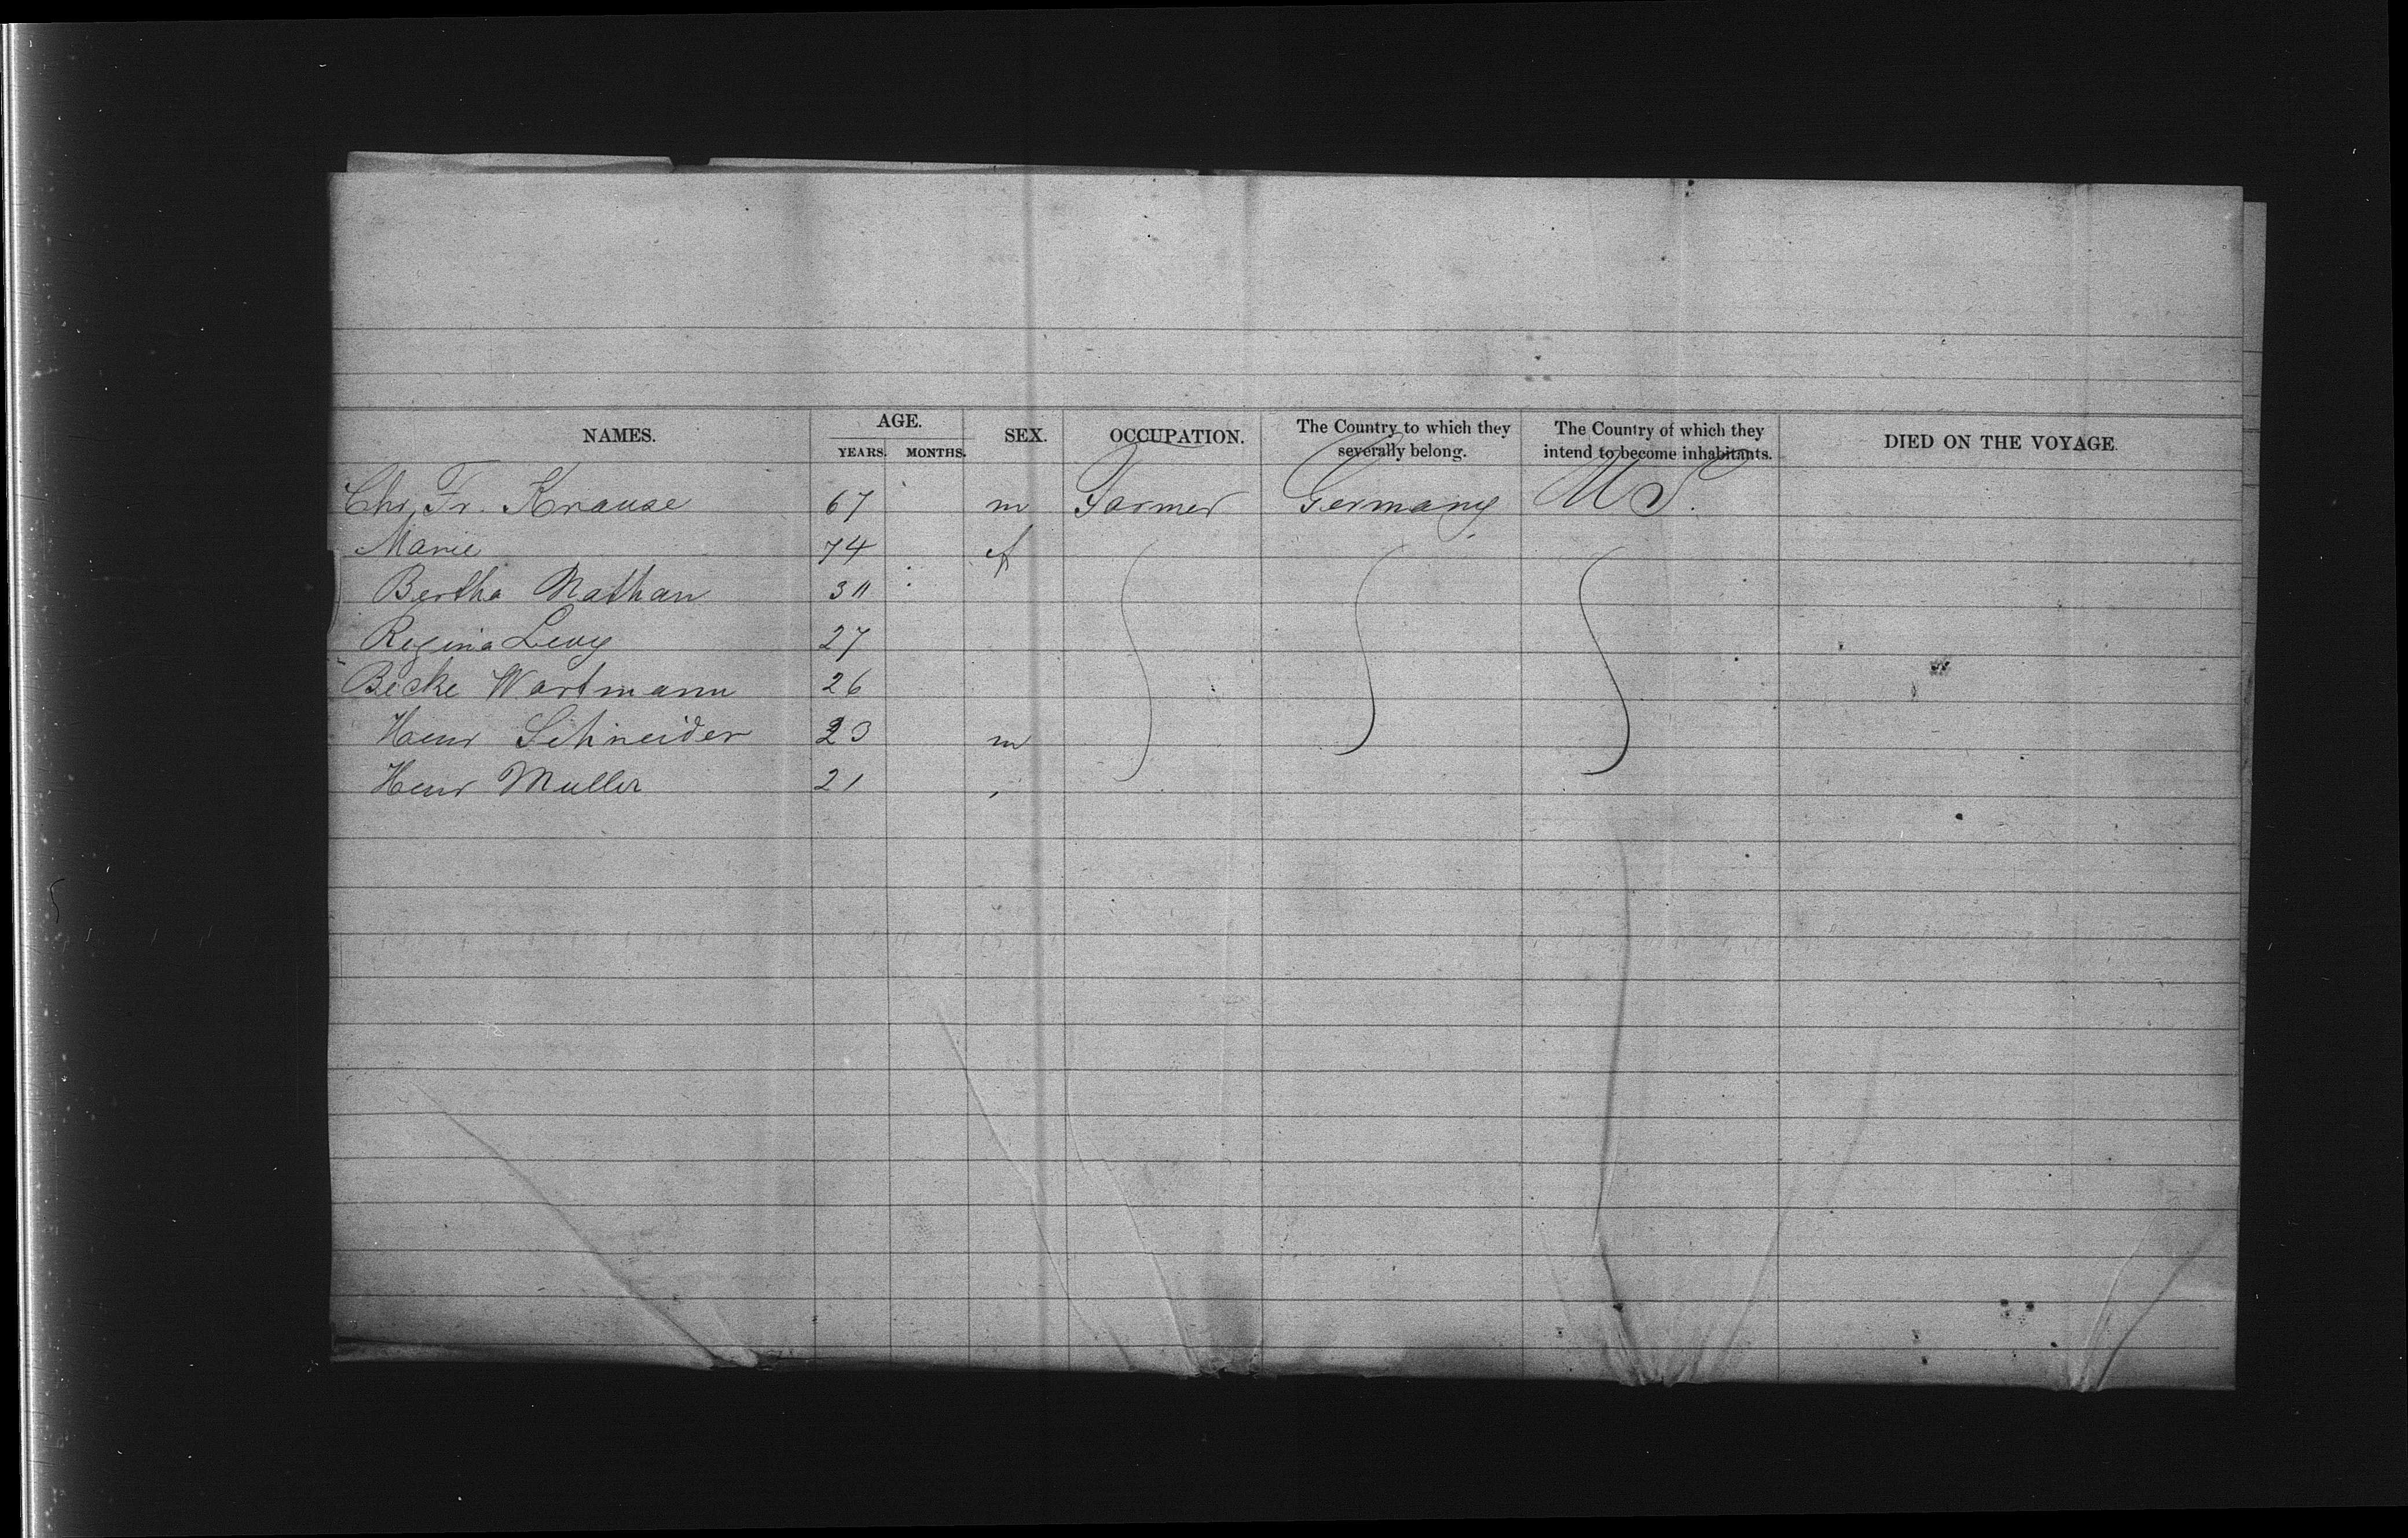 NAMES. AGE. SEX. OCCUPATION. The Country to which they severally belong. The Country of which they intend to become inhabitants. DIED ON THE VOYAGE.
YEARS. MONTHS.
Chr. Fr. Krause 67 m Farmer Germany U S.
Marie 74 f
Bertha Nathan
Regina Levy 27
Becke Wortmann 26
Henr Schneider 23 m
Henr Muller 21